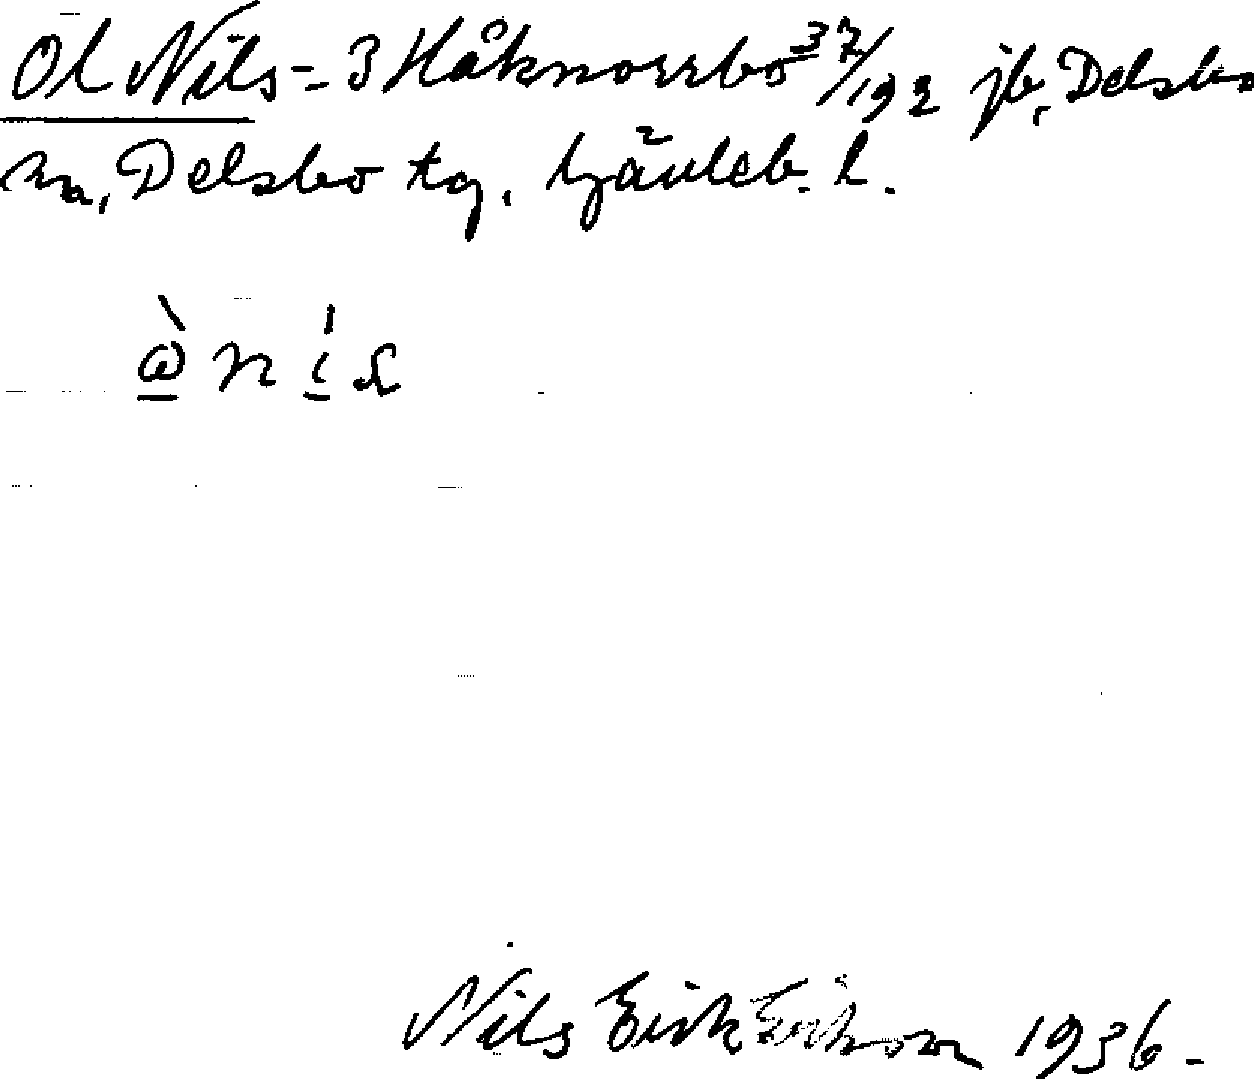 Ol Nils - 3 Håknorrbo 3⁷/192 jb, Delsbo
sn, Delsbo tg. Gävleb. l.
Nils Erik Erikson 1936.